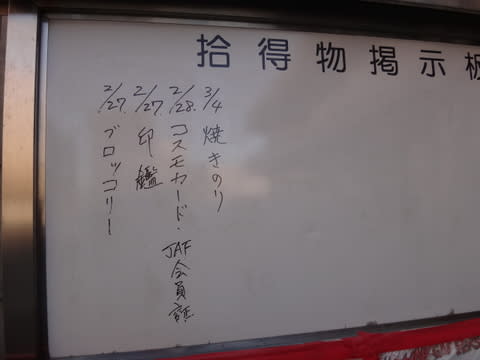 拾得物掲示板
3/4 焼きのり
2/28. コスモカード・JAF会員証
2/27. 印鑑
2/27. ブロッコリー